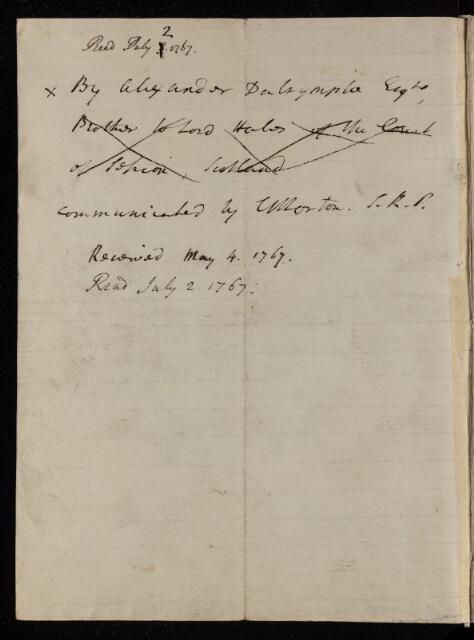 Read July 2 1767.
× By Alexander Dalrymple Esqre,
Brother to Lord Hales of the Court
of Session, Scotland
communicated by CMorton. S.R.S.
Received May 4. 1767.
Read July 2 1767: